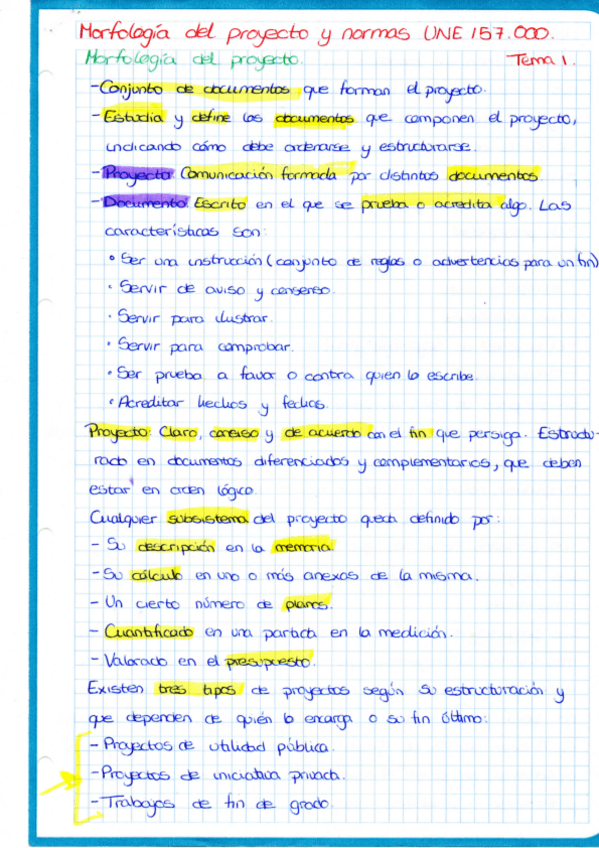 Morfología del proyecto y normas UNE 157.000.
Morfología del proyecto. Tema 1.
- Conjunto de documentos que forman el proyecto.
- Estudia y define los documentos que componen el proyecto,
indicando cómo debe ordenarse y estructurarse.
- Proyecto: Comunicación formada por distintos documentos.
- Documento: Escrito en el que se prueba o acredita algo. Las
características son:
• Ser una instrucción (conjunto de reglas o advertencias para un fin)
• Servir de aviso y consenso.
• Servir para ilustrar.
• Servir para comprobar.
• Ser prueba a favor o contra quien lo escribe.
• Acreditar hechos y fechas.
Proyecto: Claro, conciso y de acuerdo con el fin que persiga. Estructu-
rado en documentos diferenciados y complementarios, que deben
estar en orden lógico.
Cualquier subsistema del proyecto queda definido por:
- Su descripción en la memoria.
- Su cálculo en uno o más anexos de la misma.
- Un cierto número de planos.
- Cuantificado en una partida en la medición.
- Valorado en el presupuesto.
Existen tres tipos de proyectos según su estructuración y
que dependen de quién lo encarga o su fin último:
- Proyectos de utilidad pública.
- Proyectos de iniciativa privada.
- Trabajos de fin de grado.